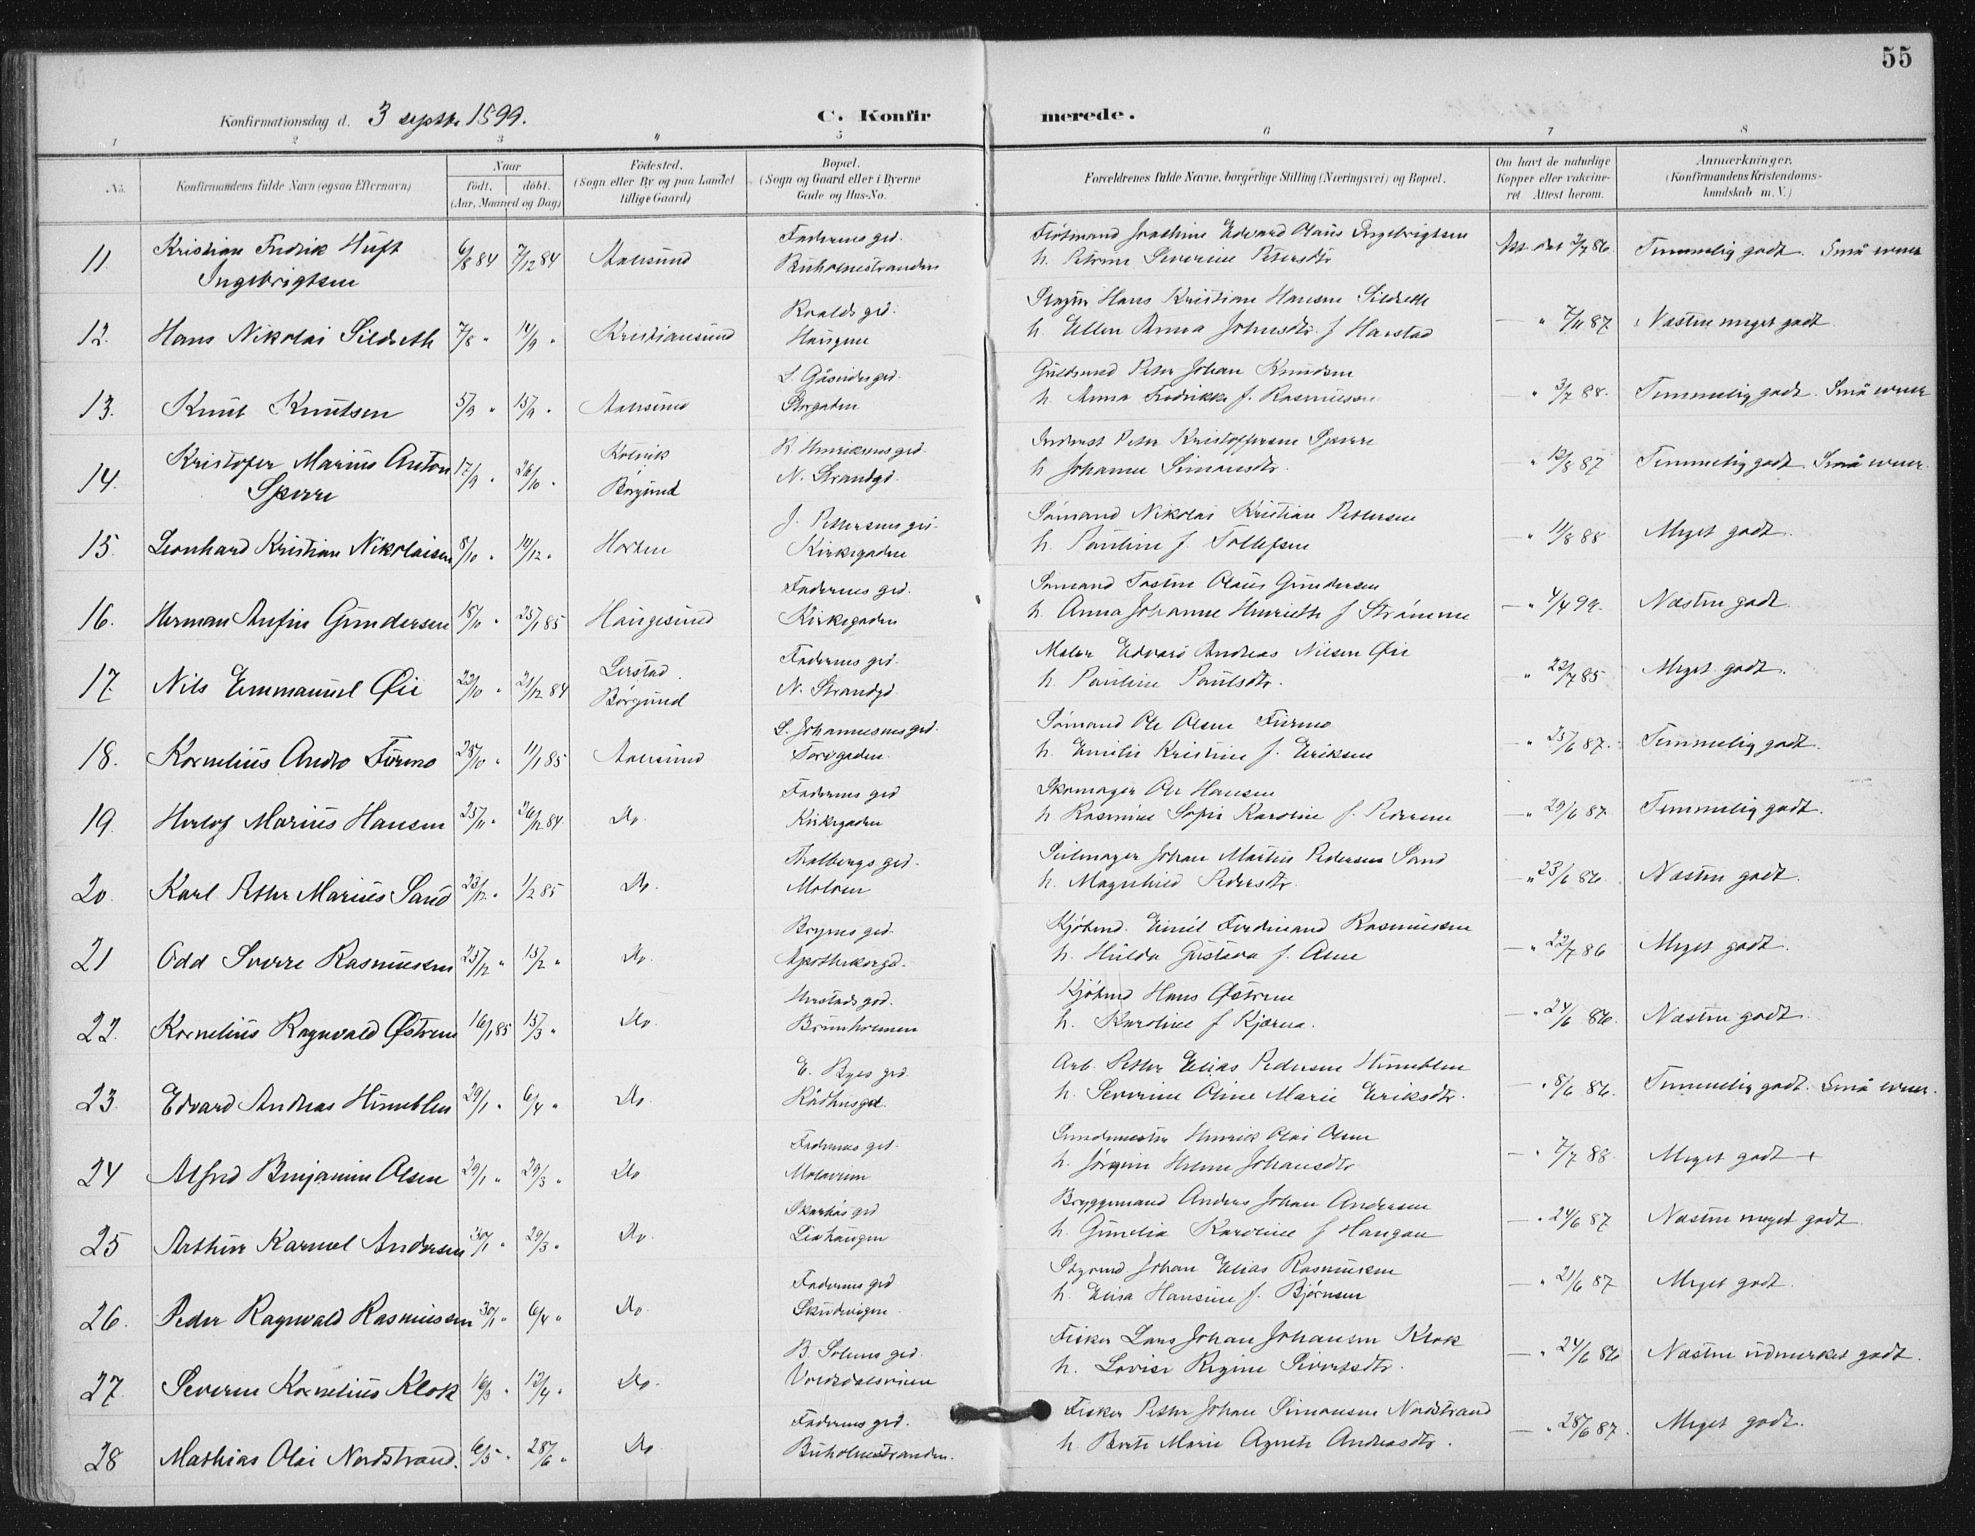 55
Konfirmationsdag d. 3 septbr. 1899.
C. Konfirmerede.
1 2 3 4 5 6 7 8
No.
Konfirmandens fulde Navn (ogsaa Efternavn)
Naar
födt. döbt.
(Aar, Maaned og Dag)
Födested.
(Sogn eller By og paa Landet
tillige Gaard)
Bopæl.
(Sogn og Gaard eller i Byerne
Gade og Hus-No.
Forældrenes fulde Navne, borgerlige Stilling (Næringsvei) og Bopæl.
Om havt de naturlige
Kopper eller vakcine-
ret Attest herom.
Anmærkninger.
(Konfirmandens Kristendoms-
kundskab m. V.)
11. Kristian Fredrik Huft
Ingebrigtsen
6/8 84 7/12 84 Aalesund
Faderens grd.
Buholmstranden
Edvard Olaus Ingebrigtsen
h. Petrine Severine Petersdtr
Att. dat 3/7 86. Temmelig godt. Små evner
12. Hans Nikolai Sildseth 7/8 " 14/9 " Kristiansund
Roalds grd.
Haugene
Hans Kristian Hansen Sildseth
h. Ellen Anna Johnsdtr. f Harstad
— " 7/11 87 Næsten meget godt.
13. Knut Knutsen 5/9 " 15/9 " Aalesund
L. Gåseides grd.
Storgaden
Guldsmed Peter Johan Knudsen
h. Anna Fredrikke f. Rasmussen
— " 3/7 88. Temmelig godt. Små evner
14. Kristofer Marius Anton
Sperre
17/9 " 26/10 "
Kolvik
Borgund
R. Henriksens grd.
N. Strandgd.
Inderst Peter Kristoffersen Sperre
h. Johanne Simonsdtr.
— " 12/8 87 Temmelig godt. Små evner.
15. Leonhard Kristian Nikolaisen 8/10 " 14/12 " Horten
J. Pettersens grd.
Kirkegaden
Sømand Nikolai Kristian Pettersen
h. Pauline f. Tollefsen
— " 11/8 88 Meget godt.
16. Herman Arfin Gundersen 18/10 " 25/1 85 Haugesund
Faderens grd.
Kirkegaden
Sømand Tosten Olaus Gundersen
h. Anna Johanne Henriette f Strømme
— " 4/4 99. Næsten godt.
17. Nils Emmanuel Øie 23/10 " 21/12 84
Lerstad.
Borgund
Faderens grd.
N. Strandgd
Maler Edvard Andreas Nilsen Øie
h. Pauline Paulsdtr.
" 22/7 85 Meget godt.
18. Kornelius Andro Furmo 28/10 " 11/1 85 Aalesund
L. Johannesens grd.
Torvgaden.
Sømand Ole Olsen Furmo
h. Emilie Kristine f. Eriksen
— " 25/6 87. Temmelig godt.
19. Herlof Marius Hansen 25/11 " 26/12 84. Do.
Faderens grd
Kirkegaden
Skomager Ole Hansen
h. Rasmine Sofie Karoline f. Pedersen
— " 29/6 87 Temmelig godt.
20. Karl Peter Marius Sand 23/12 " 1/2 85 Do.
Thalbergs grd.
Moloen
Seilmager Johan Martin Pedersen Sand
h. Magnhild Pedersdtr.
— " 23/6 86. Næsten godt.
21 Odd Sverre Rasmussen 25/12 " 15/2 " Do.
Brynes grd.
Apothekergd.
Kjøbmd. Emil Ferdinand Rasmussen
h. Hulda Gustava f. Aune
— " 22/7 86 Meget godt.
22. Kornelius Ragnvald Østrem 16/1 85 15/3 " Do.
Herstads grd.
Brunholmen
Kjøbmd Hans Østrem
h. Karoline f Kjærra.
— " 24/6 86. Næsten godt.
23. Edvard Andreas Humblen 29/1 " 6/4 " Do.
E. Byes grd.
Rådhusgd.
Arb. Petter Elias Pedersen Humblen
h. Severine Oline Marie Eriksdtr.
— " 8/6 86. Temmelig godt. Små evner.
24 Alfred Benjamin Olsen 29/1 " 29/3 " Do
Faderens grd.
Moloveien
Henrik Olai Olsen
h. Jørgine Helene Johansdtr
— " 7/7 88. Meget godt +
25 Arthur Karmel Andersen 30/1 " 29/3 " Do.
Skarbøs grd
Liahaugen
Bryggemand Anders Johan Andersen
h. Gunelia Karoline f Haugan
— " 24/6 87 Næsten meget godt.
26. Peder Ragnvald Rasmussen 30/1 " 6/4 " Do.
Faderens grd
Skudevigen
Styrmd Johan Elias Rasmussen
h. Elisa Hansine f. Bjørnsen
— " 21/6 87 Meget godt.
27. Severin Kornelius Klok 16/3 " 13/4 " Do.
B. Solems grd.
Voldsdalsveien
Fisker Lars Johan Johansen Klok
h. Lovise Regine Sivertsdtr.
— " 24/6 86 Næsten udmerket godt.
28 Mathias Olai Nordstrand. 6/5 " 28/6 " Do
Faderens grd.
Buholmstranden.
Fisker Petter Johan Simonsen Nordstrand
h. Berte Marie Agnete Andreasdtr.
— " 28/6 87. Meget godt.